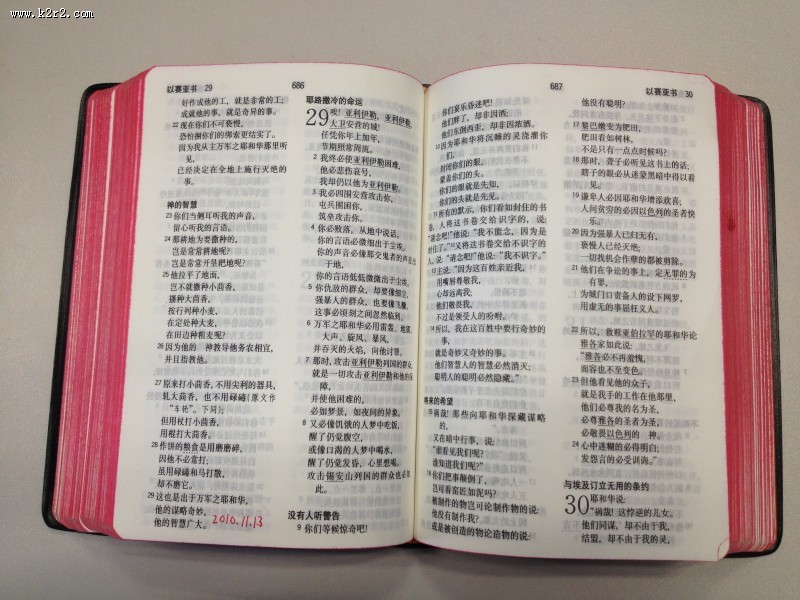 www.k2r2.com
以赛亚书 29
686
好作成他的工，就是非常的工；
成就他的事，就是奇异的事。
22 现在你们不可亵慢，
恐怕捆你们的绑索更结实了。
因为我从主万军之耶和华那里听
见，
已经决定在全地上施行灭绝的
事。
神的智慧
23 你们当侧耳听我的声音，
留心听我的言语。
24 那耕地为要撒种的，
岂是常常耕地呢？
岂是常常开垦耙地呢？
25 他拉平了地面，
岂不就撒种小茴香，
播种大茴香，
按行列种小麦，
在定处种大麦，
在田边种粗麦呢？
26 因为他的　神教导他务农相宜，
并且指教他。
27 原来打小茴香，不用尖利的器具，
轧大茴香，也不用碌碡（原文作
“车轮”。下同）；
但用杖打小茴香，
用棍打大茴香。
28 作饼的粮食是用磨磨碎，
因他不必常打；
虽用碌碡和马打散，
却不磨它。
29 这也是出于万军之耶和华，
他的谋略奇妙，
他的智慧广大。 2010.11.13
耶路撒冷的命运
29 唉！亚利伊勒，亚利伊勒，
大卫安营的城！
任凭你年上加年，
节期照常周流。
2 我终必使亚利伊勒困难，
他必悲伤哀号，
我却仍以他为亚利伊勒。
3 我必四围安营攻击你，
屯兵围困你，
筑垒攻击你。
4 你必败落，从地中说话，
你的言语必微细出于尘埃。
你的声音必像那交鬼者的声音出
于地，
你的言语低低微微出于尘埃。
5 你仇敌的群众，却要像细尘，
强暴人的群众，也要像飞糠。
这事必顷刻之间忽然临到。
6 万军之耶和华必用雷轰、地震、
大声、旋风、暴风，
并吞灭的火焰，向他讨罪。
7 那时，攻击亚利伊勒列国的群众，
就是一切攻击亚利伊勒和他的保
障，
并使他困难的，
必如梦景，如夜间的异象。
8 又必像饥饿的人梦中吃饭，
醒了仍觉腹空，
或像口渴的人梦中喝水，
醒了仍觉发昏，心里想喝。
攻击锡安山列国的群众也必如
此。
没有人听警告
9 你们等候惊奇吧！
687
以赛亚书 30
你们宴乐昏迷吧！
他们醉了，却非因酒；
他们东倒西歪，却非因浓酒。
10 因为耶和华将沉睡的灵浇灌你
们，
封闭你们的眼，
蒙盖你们的头。
你们的眼就是先知，
你们的头就是先见。
11 所有的默示，你们看如封住的书
卷，人将这书卷交给识字的，说：
“请念吧！”他说：“我不能念，因为是
封住了。”12又将这书卷交给不识字的
人，说：“请念吧！”他说：“我不识字。”
13 主说：“因为这百姓亲近我，
用嘴唇尊敬我，
心却远离我；
他们敬畏我，
不过是领受人的吩咐。
14 所以，我在这百姓中要行奇妙的
事，
就是奇妙又奇妙的事。
他们智慧人的智慧必然消灭；
聪明人的聪明必然隐藏。”
将来的希望
15 祸哉！那些向耶和华深藏谋略
的，
又在暗中行事，说：
“谁看见我们呢？
谁知道我们呢？”
16 你们把事颠倒了，
岂可看窑匠如泥吗？
被制作的物岂可论制作物的说：
他没有制作我？
或是被创造的物论造物的说：
他没有聪明？
17 黎巴嫩变为肥田，
肥田看如树林，
不是只有一点点时候吗？
18 那时，聋子必听见这书上的话；
瞎子的眼必从迷蒙黑暗中得以看
见。
19 谦卑人必因耶和华增添欢喜；
人间贫穷的必因以色列的圣者快
乐。
20 因为强暴人已归无有，
亵慢人已经灭绝，
一切找机会作孽的都被剪除。
21 他们在争讼的事上，定无罪的为
有罪，
为城门口责备人的设下网罗，
用虚无的事屈枉义人。
22 所以，救赎亚伯拉罕的耶和华论
雅各家如此说：
“雅各必不再羞愧，
面容也不至变色。
23 但他看见他的众子，
就是我手的工作在他那里，
他们必尊我的名为圣，
必尊雅各的圣者为圣，
必敬畏以色列的　神。
24 心中迷糊的必得明白；
发怨言的必受训诲。”
与埃及订立无用的条约
30 耶和华说：
“祸哉！这悖逆的儿女。
他们同谋，却不由于我，
结盟，却不由于我的灵，